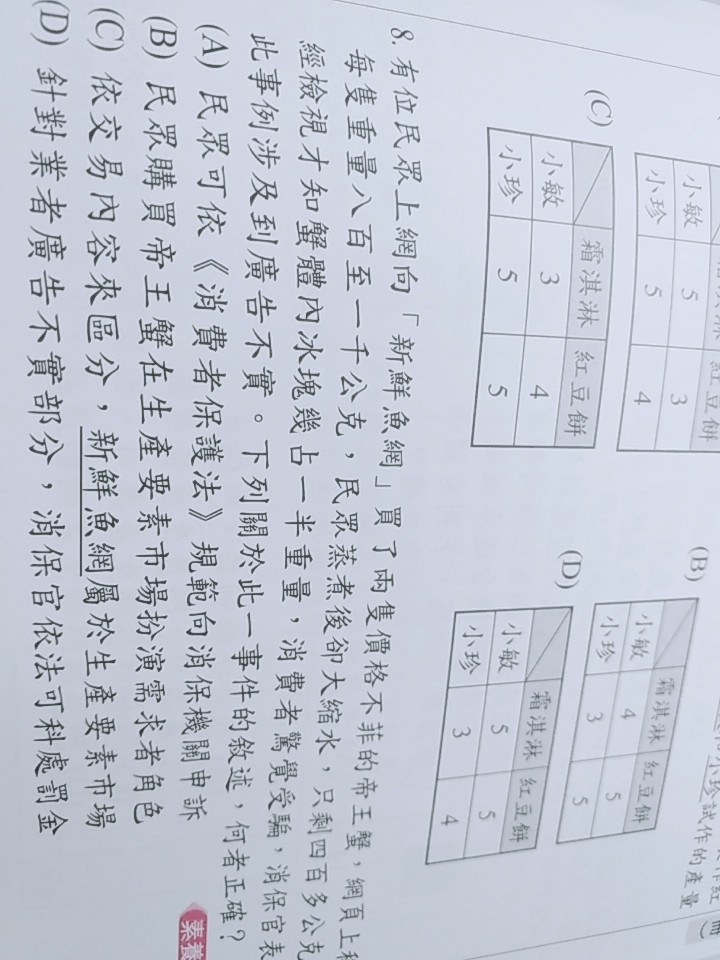 小珍試作的產量
霜淇淋 紅豆餅
小敏 5 3
小珍 5 4
(B)
霜淇淋 紅豆餅
小敏 4 5
小珍 3 5
(C)
霜淇淋 紅豆餅
小敏 3 4
小珍 5 5
(D)
霜淇淋 紅豆餅
小敏 5 5
小珍 3 4
8. 有位民眾上網向「新鮮魚網」買了兩隻價格不菲的帝王蟹,網頁上
每隻重量八百至一千公克,民眾蒸煮後卻大縮水,只剩四百多公克
經檢視才知蟹體內冰塊幾占一半重量,消費者驚覺受騙,消保官表
此事例涉及到廣告不實。下列關於此一事件的敘述,何者正確?
(A) 民眾可依《消費者保護法》規範向消保機關申訴
(B) 民眾購買帝王蟹在生產要素市場扮演需求者角色
(C) 依交易內容來區分,新鮮魚網屬於生產要素市場
(D) 針對業者廣告不實部分,消保官依法可科處罰金
素養